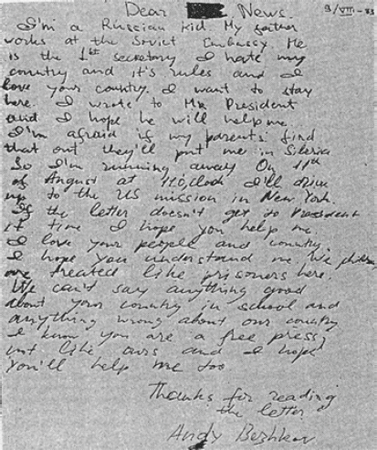 Dear News. 9/VIII-83
I'm a Russian kid. My father
works at the Soviet Embassy. He
is the 1st secretary I hate my
country and it's rules and I
love your country. I want to stay
here. I wrote to Mr President
and I hope he will help me
I'm afraid if my parents find
that out they'll put me in Siberia
So I'm running away On 11th
of August at I'll drive
up to the US mission in New York
If the letter doesn't get to
it time I hope you help me.
I love your people and country.
I hope you understand me We
are treated like prisoners here.
We can't say anything good
about your country in school and
anything wrong about our country
I know you are a free press,
not like ours and I hope
you'll help me too
Thanks for reading
the letter
Andy